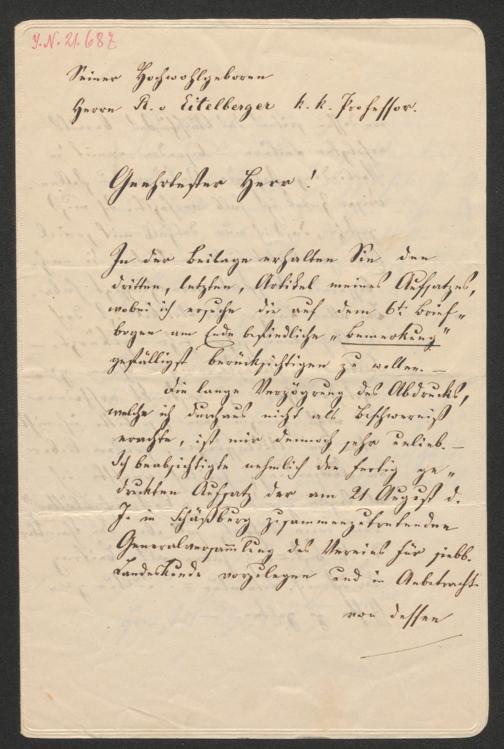 J. N. 21.687
Seiner Hochwohlgeboren
Herrn R. v Eitelberger k. k. Professor.
Geehrtester Herr!
In der Beilage erhalten Sie den
dritten, letzten, Artikel meines Aufsatzes,
wobei ich ersuche die auf dem 6t. Brief„
bogen am Ende befindliche „Bemerkung"
gefälligst berücksichtigen zu wollen. —
Die lange Verzögrung des Abdrucks,
welche ich durchaus nicht als Beschwerniß
erachte, ist mir dennoch sehr unlieb. —
Ich beabsichtigte nehmlich den fertig ge„
druckten Aufsatz der am 21 August d.
J. in Schäßburg zusammenzutretenden
Generalversammlung des Vereines für siebb.
Landeskunde vorzulegen und in Anbetracht
von dessen